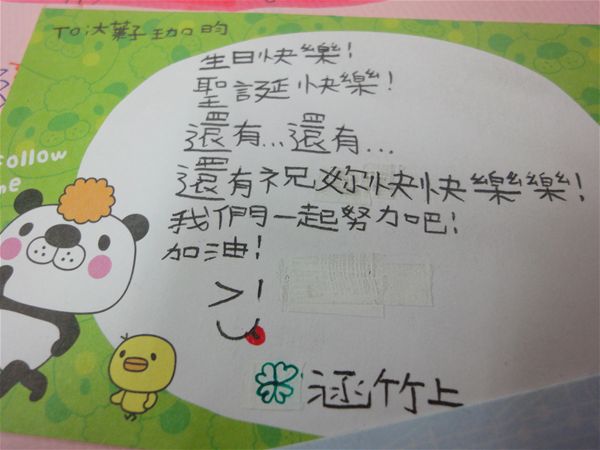 To:大葉子 加的
生日快樂!
聖誕快樂!
還有...還有...
還有祝妳快快樂樂!
我們一起努力吧!
加油!
Follow
me
涵竹上